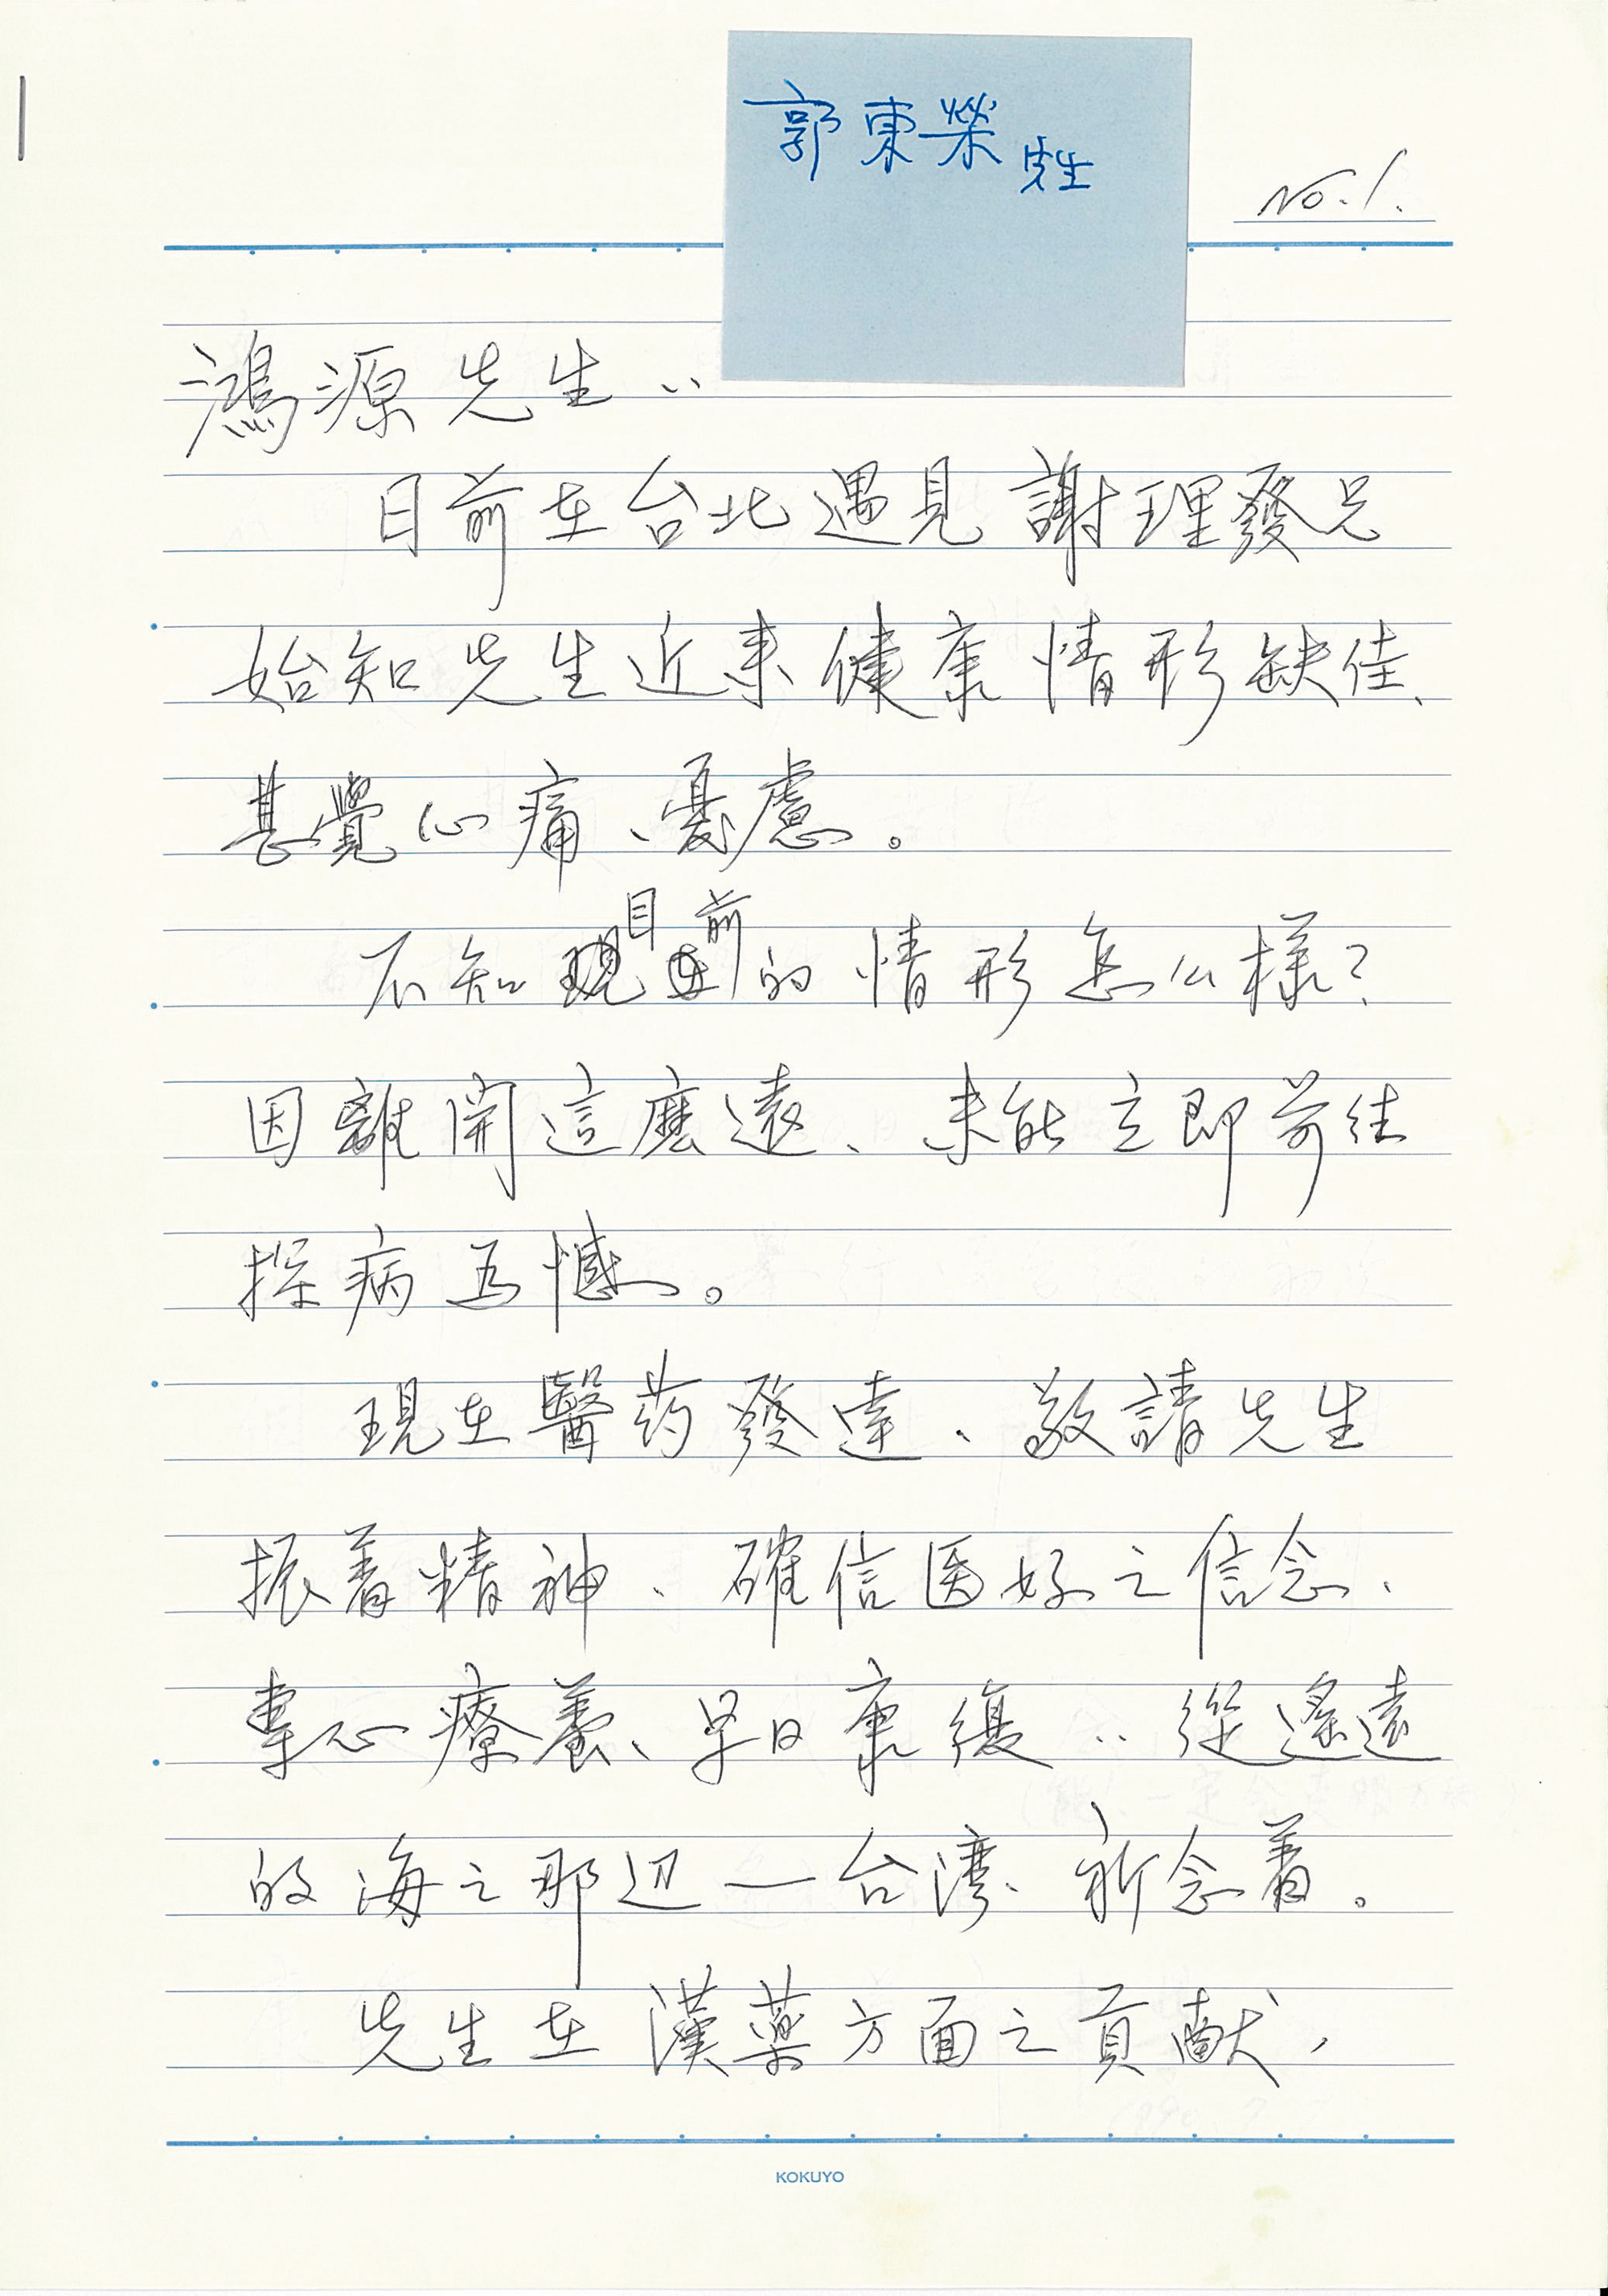 郭東榮先生
No.1.
鴻源先生：
日前在台北遇見謝理發兄
始知先生近来健康情形缺佳、
甚覺心痛、憂慮。
不知目前的情形怎么樣？
因離開這麼遠、未能立即前往
探病為憾。
現在醫药發達、敬請先生
振着精神、確信医好之信念、
專心療養、早日康復‥從遙遠
的海之那辺—台湾、祈念着。
先生在漢薬方面之貢献，
KOKUYO